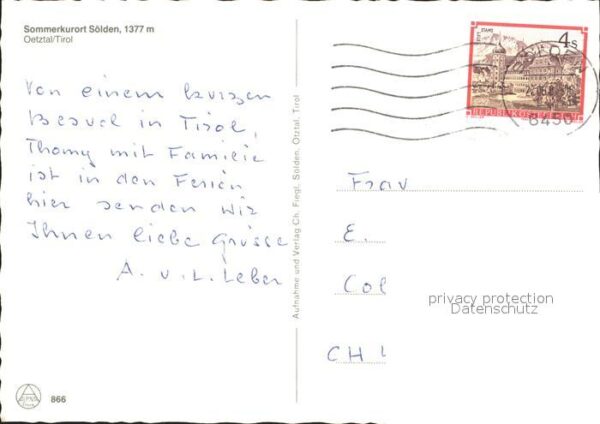 Sommerkurort Sölden, 1377 m
Oetztal/Tirol
Von einem kurzen
Besuch in Tirol,
Thomy mit Familie
ist in den Ferien
hier senden wir
Ihnen liebe Grüsse
A. u. L. Leber
866
Aufnahme und Verlag Ch. Fiegl, Sölden, Ötztal, Tirol
STIFT STAMS
4 S
REPUBLIK ÖSTERREICH
6450
Frau
E.
Col
CH
privacy protection
Datenschutz